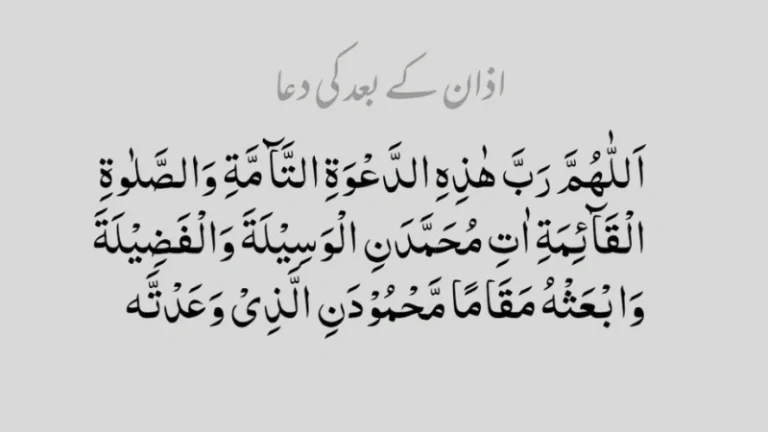 اذان کے بعد کی دعا
اَللّٰهُمَّ رَبَّ هٰذِهِ الدَّعْوَةِ التَّآمَّةِ وَالصَّلٰوةِ
الْقَآئِمَةِ اٰتِ مُحَمَّدَنِ الْوَسِيْلَةَ وَالْفَضِيْلَةَ
وَابْعَثْهُ مَقَامًا مَّحْمُوْدَنِ الَّذِىْ وَعَدْتَّه